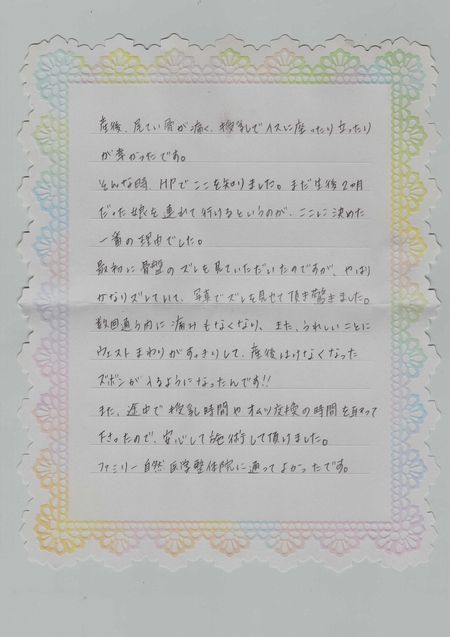 産後、尾てい骨が痛く、授乳でイスに座ったり立ったり
が辛かったです。
そんな時、HPでここを知りました。まだ生後2ヶ月
だった娘を連れて行けるというのが、ここに決めた
一番の理由でした。
最初に骨盤のズレを見ていただいたのですが、やはり
かなりズレていて、写真でズレを見せて頂き驚きました。
数回通う内に痛みもなくなり、また、うれしいことに
ウェストまわりがすっきりして、産後はけなくなった
ズボンが入るようになったんです!!
また、途中で授乳時間やオムツ交換の時間を取って
下さったので、安心して施術して頂けました。
ファミリー自然医学整体院に通ってよかったです。